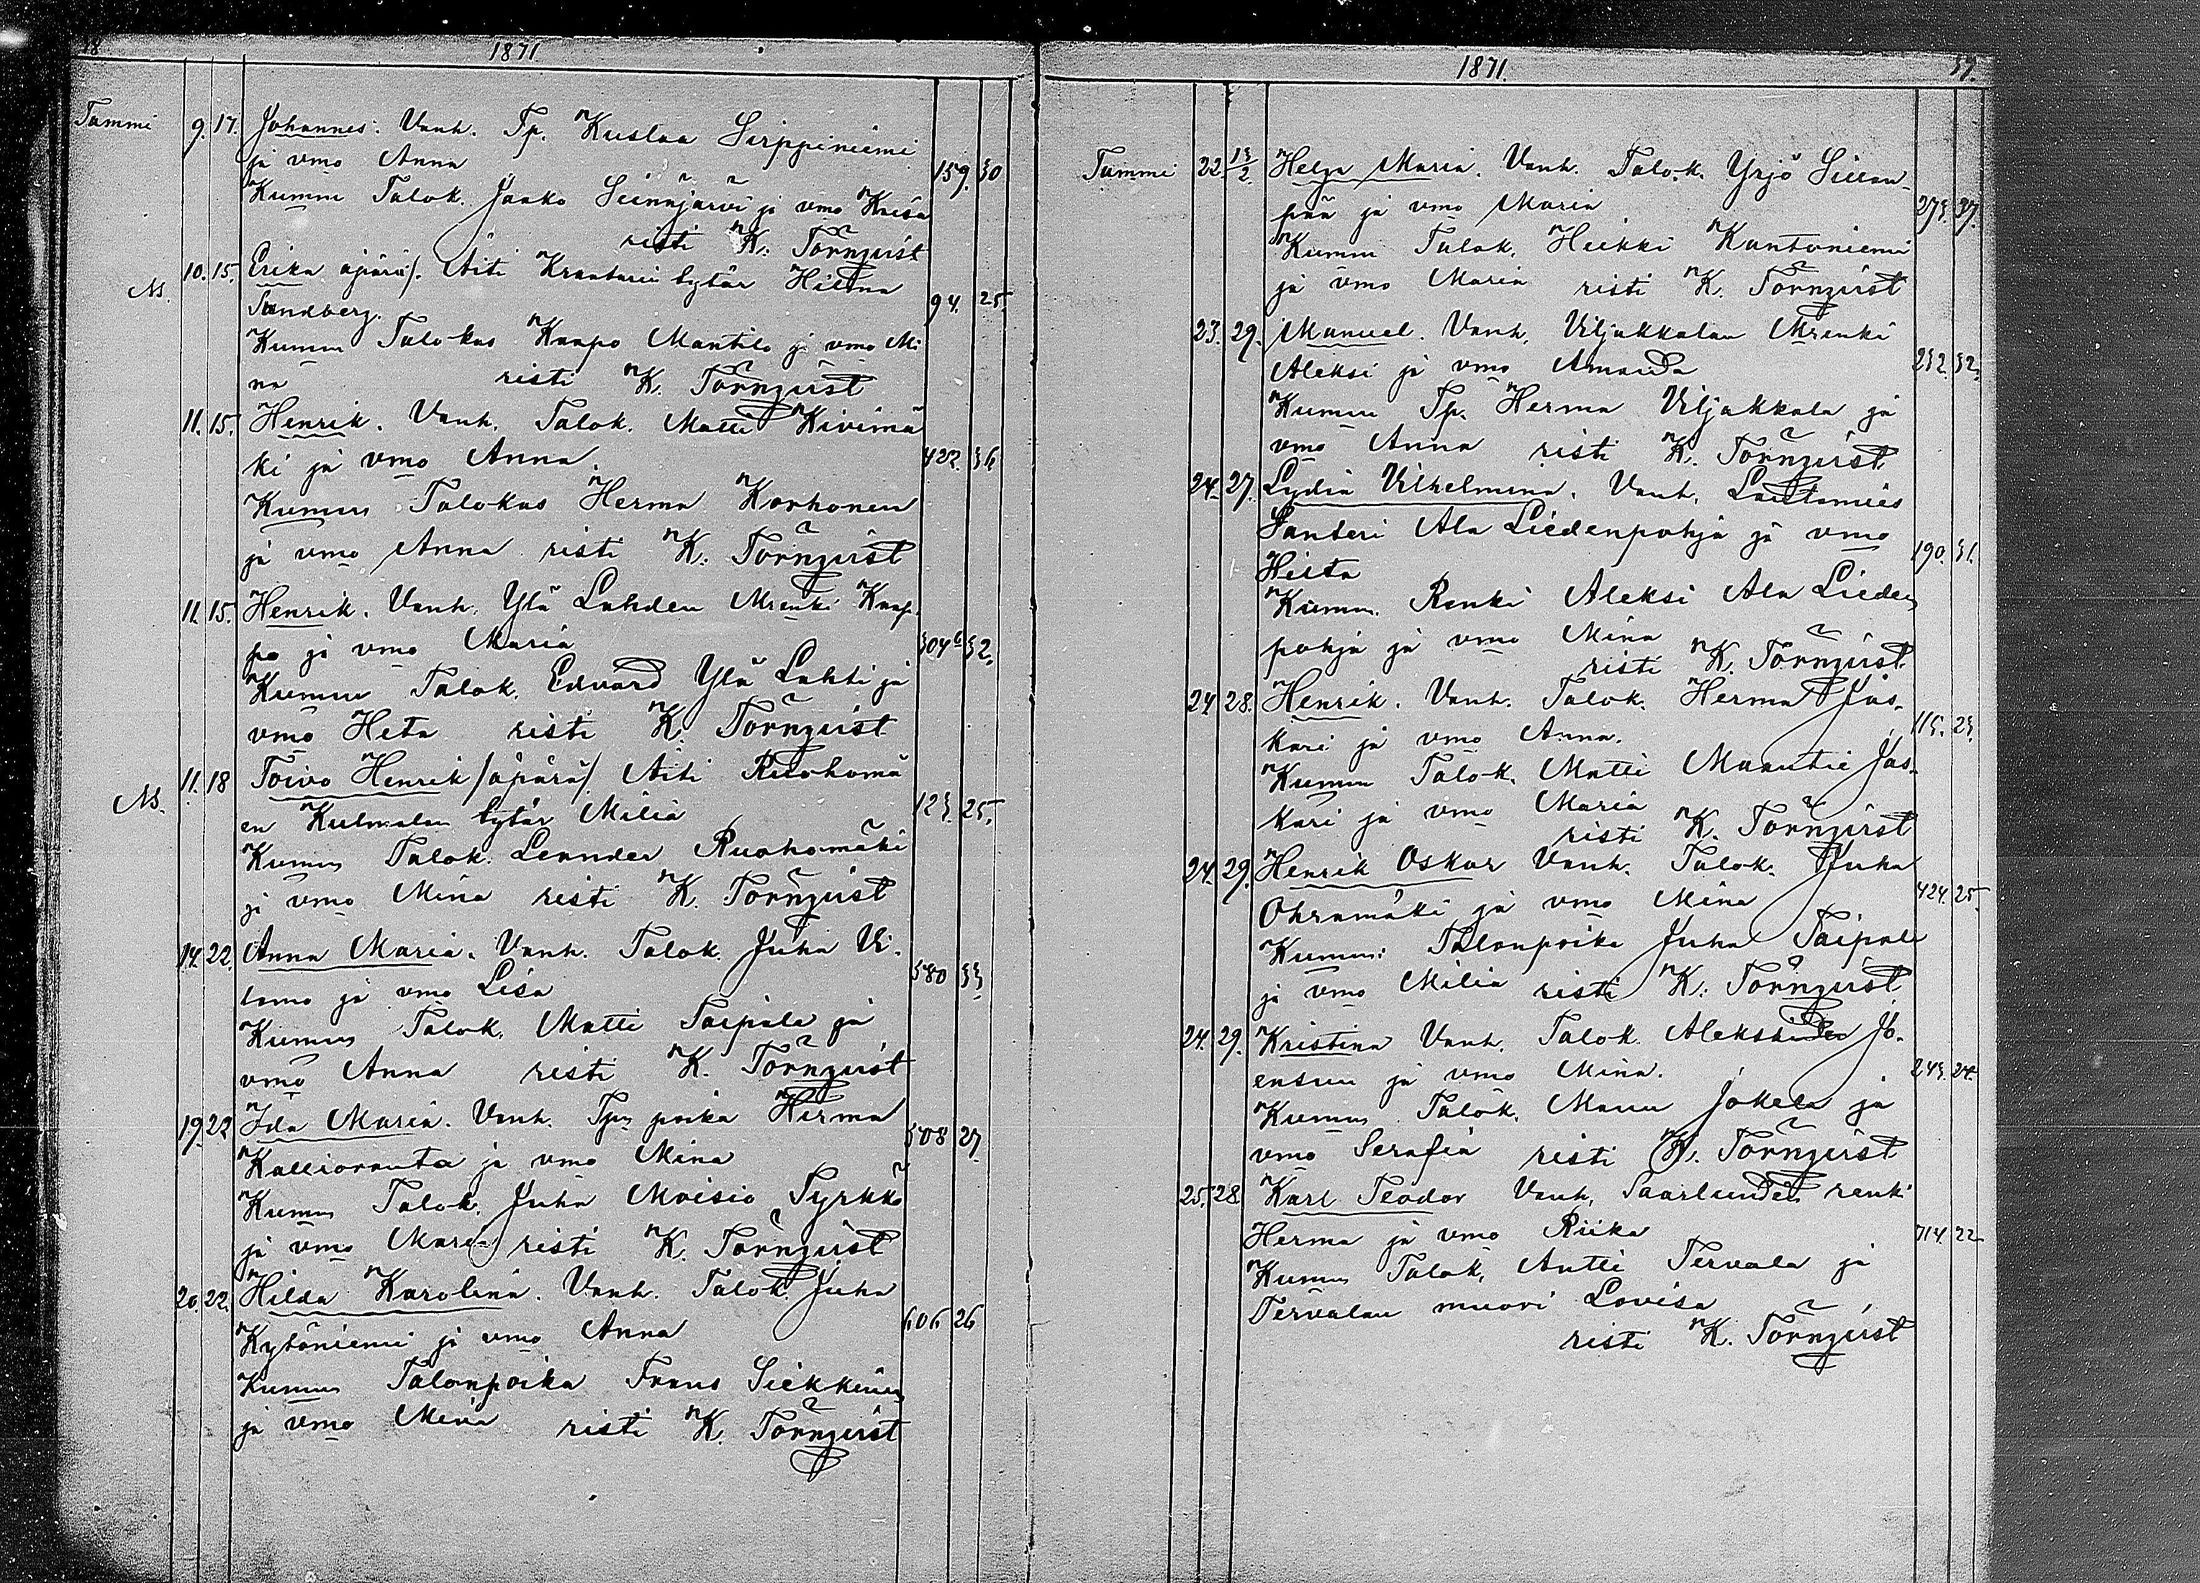 18
1871
Tammi 9. 17. Johannes. Vanh. Tp. Kustaa Sirppiniemi
ja vmo Anna 159. 30
Kumm Talok. Jaako Seinäjärvi ja vmo Kaisa
risti K. Törnqvist
M. 10. 15. Erika äpärä/. Äiti Kranturin tytär Hilma
Sandberg. 94. 25.
Kumm Talokas Kaapo Mantila ja vmo Mi
na risti K. Törnqvist
11. 15. Henrik. Vanh. Talok. Matti Kivimä
ki ja vmo Anna. 422. 36
Kumm Talokas Herma Korhonen
ja vmo Anna risti K. Törnqvist
11. 15. Henrik. Vanh. Ylä Lahden Mrenki Kaap
po ja vmo Maria 304 32.
Kumm Talok. Edvard Ylä Lahti ja
vmo Heta risti K. Törnqvist
M. 11. 18 Toivo Henrik /äpärä/. Äiti Ruohomä
en Kulmalan tytär Milia 123. 25.
Kumm Talok. Leander Ruohomäki
ja vmo Mina risti K. Törnqvist
14. 22. Anna Maria. Vanh. Talok. Juha Vi-
lamo ja vmo Lisa 380 33
Kumm Talok. Matti Taipale ja
vmo Anna risti K. Törnqvist
19. 22 Ida Maria. Vanh. Tpn poika Herma
Kalliorauta ja vmo Mina 308 27.
Kumm Talok. Juha Moisio Tyrkkö
ja vmo Maria risti K. Törnqvist
20. 22. Hilda Karolina. Vanh. Talok. Juha
Kytöniemi ja vmo Anna 606 26
Kumm Talonpoika Frans Siekkinen
ja vmo Mina risti K. Törnqvist
1871.
Tammi 22 13/2. Helga Maria. Vanh. Talo.k. Yrjö Sillan-
pää ja vmo Maria 273. 37.
Kumm Talok. Heikki Kantoniemi
ja vmo Maria risti K. Törnqvist
23. 29. Manuel. Vanh. Viljakkalan Mrenki
Aleksi ja vmo Amanda 232. 32.
Kumm Tp. Herma Viljakkala ja
vmo Anna risti K. Törnqvist
24. 27. Lydia Vilhelmina. Vanh. Lautamies
Santeri Ala Liedenpohja ja vmo
Heita 190. 31.
Kumm. Renki Aleksi Ala Lieden
pohja ja vmo Mina
risti K. Törnqvist
24 28. Henrik. Vanh. Talok. Herma Jäs-
kari ja vmo Anna. 115. 23.
Kumm Talok. Matti Jäs-
kari ja vmo Maria
risti K. Törnqvist
24. 29. Henrik Oskar Vanh. Talok. Juha
Ohramäki ja vmo Mina 424. 25.
Kumm: Talonpoika Juha Taipale
ja vmo Milia risti K. Törnqvist
24. 29. Kristina Vanh. Talok. Aleksander Jo-
ensuu ja vmo Mina. 243. 24.
Kumm Talok. Manu Jokela ja
vmo Serafia risti K. Törnqvist
25. 28. Karl Teodor Vanh. Saarlunden renki
Herma ja vmo Riika 714. 22
Kumm Talok. Antti Tervala ja
Tervalan muori Lovisa
risti K. Törnqvist